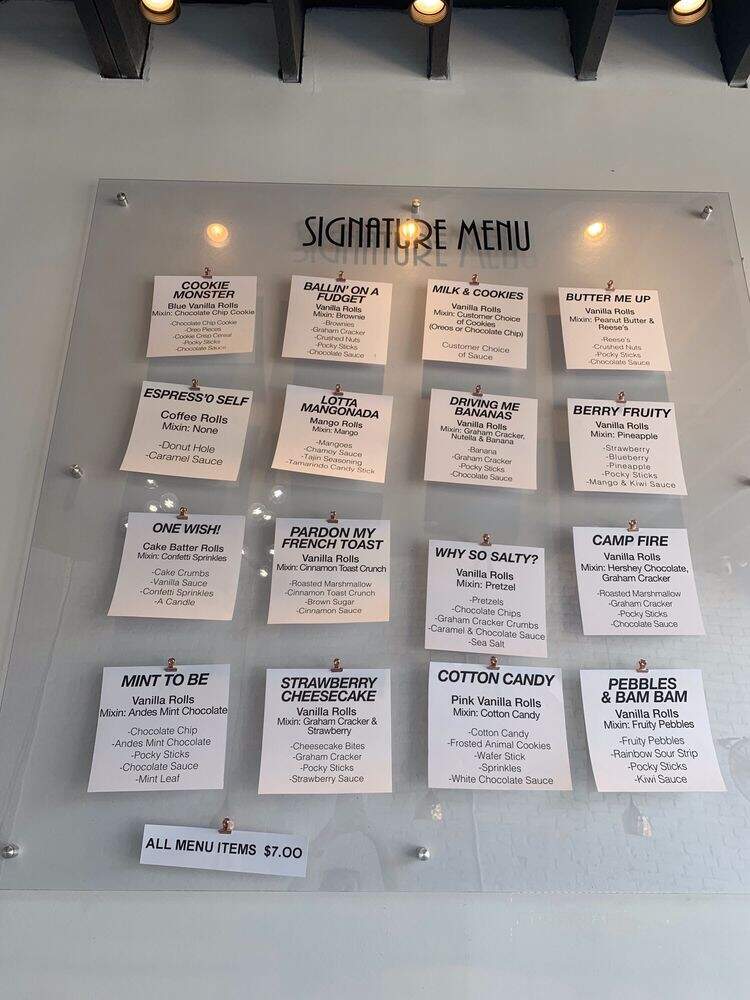 SIGNATURE MENU
COOKIE
MONSTER
Blue Vanilla Rolls
Mixin: Chocolate Chip Cookie
-Chocolate Chip Cookie
-Oreo Pieces
-Cookie Crisp Cereal
-Pocky Sticks
-Chocolate Sauce
BALLIN' ON A
FUDGET
Vanilla Rolls
Mixin: Brownie
-Brownies
-Graham Cracker
-Crushed Nuts
-Pocky Sticks
-Chocolate Sauce
MILK & COOKIES
Vanilla Rolls
Mixin: Customer Choice
of Cookies
(Oreos or Chocolate Chip)
Customer Choice
of Sauce
BUTTER ME UP
Vanilla Rolls
Mixin: Peanut Butter &
Reese's
-Reese's
-Crushed Nuts
-Pocky Sticks
-Chocolate Sauce
ESPRESS'O SELF
Coffee Rolls
Mixin: None
-Donut Hole
-Caramel Sauce
LOTTA
MANGONADA
Mango Rolls
Mixin: Mango
-Mangoes
-Chamoy Sauce
-Tajin Seasoning
-Tamarindo Candy Stick
DRIVING ME
BANANAS
Vanilla Rolls
Mixin: Graham Cracker,
Nutella & Banana
-Banana
-Graham Cracker
-Pocky Sticks
-Chocolate Sauce
BERRY FRUITY
Vanilla Rolls
Mixin: Pineapple
-Strawberry
-Blueberry
-Pineapple
-Pocky Sticks
-Mango & Kiwi Sauce
ONE WISH!
Cake Batter Rolls
Mixin: Confetti Sprinkles
-Cake Crumbs
-Vanilla Sauce
-Confetti Sprinkles
-A Candle
PARDON MY
FRENCH TOAST
Vanilla Rolls
Mixin: Cinnamon Toast Crunch
-Roasted Marshmallow
-Cinnamon Toast Crunch
-Brown Sugar
-Cinnamon Sauce
WHY SO SALTY?
Vanilla Rolls
Mixin: Pretzel
-Pretzels
-Chocolate Chips
-Graham Cracker Crumbs
-Caramel & Chocolate Sauce
-Sea Salt
CAMP FIRE
Vanilla Rolls
Mixin: Hershey Chocolate,
Graham Cracker
-Roasted Marshmallow
-Graham Cracker
-Pocky Sticks
-Chocolate Sauce
MINT TO BE
Vanilla Rolls
Mixin: Andes Mint Chocolate
-Chocolate Chip
-Andes Mint Chocolate
-Pocky Sticks
-Chocolate Sauce
-Mint Leaf
STRAWBERRY
CHEESECAKE
Vanilla Rolls
Mixin: Graham Cracker &
Strawberry
-Cheesecake Bites
-Graham Cracker
-Pocky Sticks
-Strawberry Sauce
COTTON CANDY
Pink Vanilla Rolls
Mixin: Cotton Candy
-Cotton Candy
-Frosted Animal Cookies
-Wafer Stick
-Sprinkles
-White Chocolate Sauce
PEBBLES
& BAM BAM
Vanilla Rolls
Mixin: Fruity Pebbles
-Fruity Pebbles
-Rainbow Sour Strip
-Pocky Sticks
-Kiwi Sauce
ALL MENU ITEMS $7.00